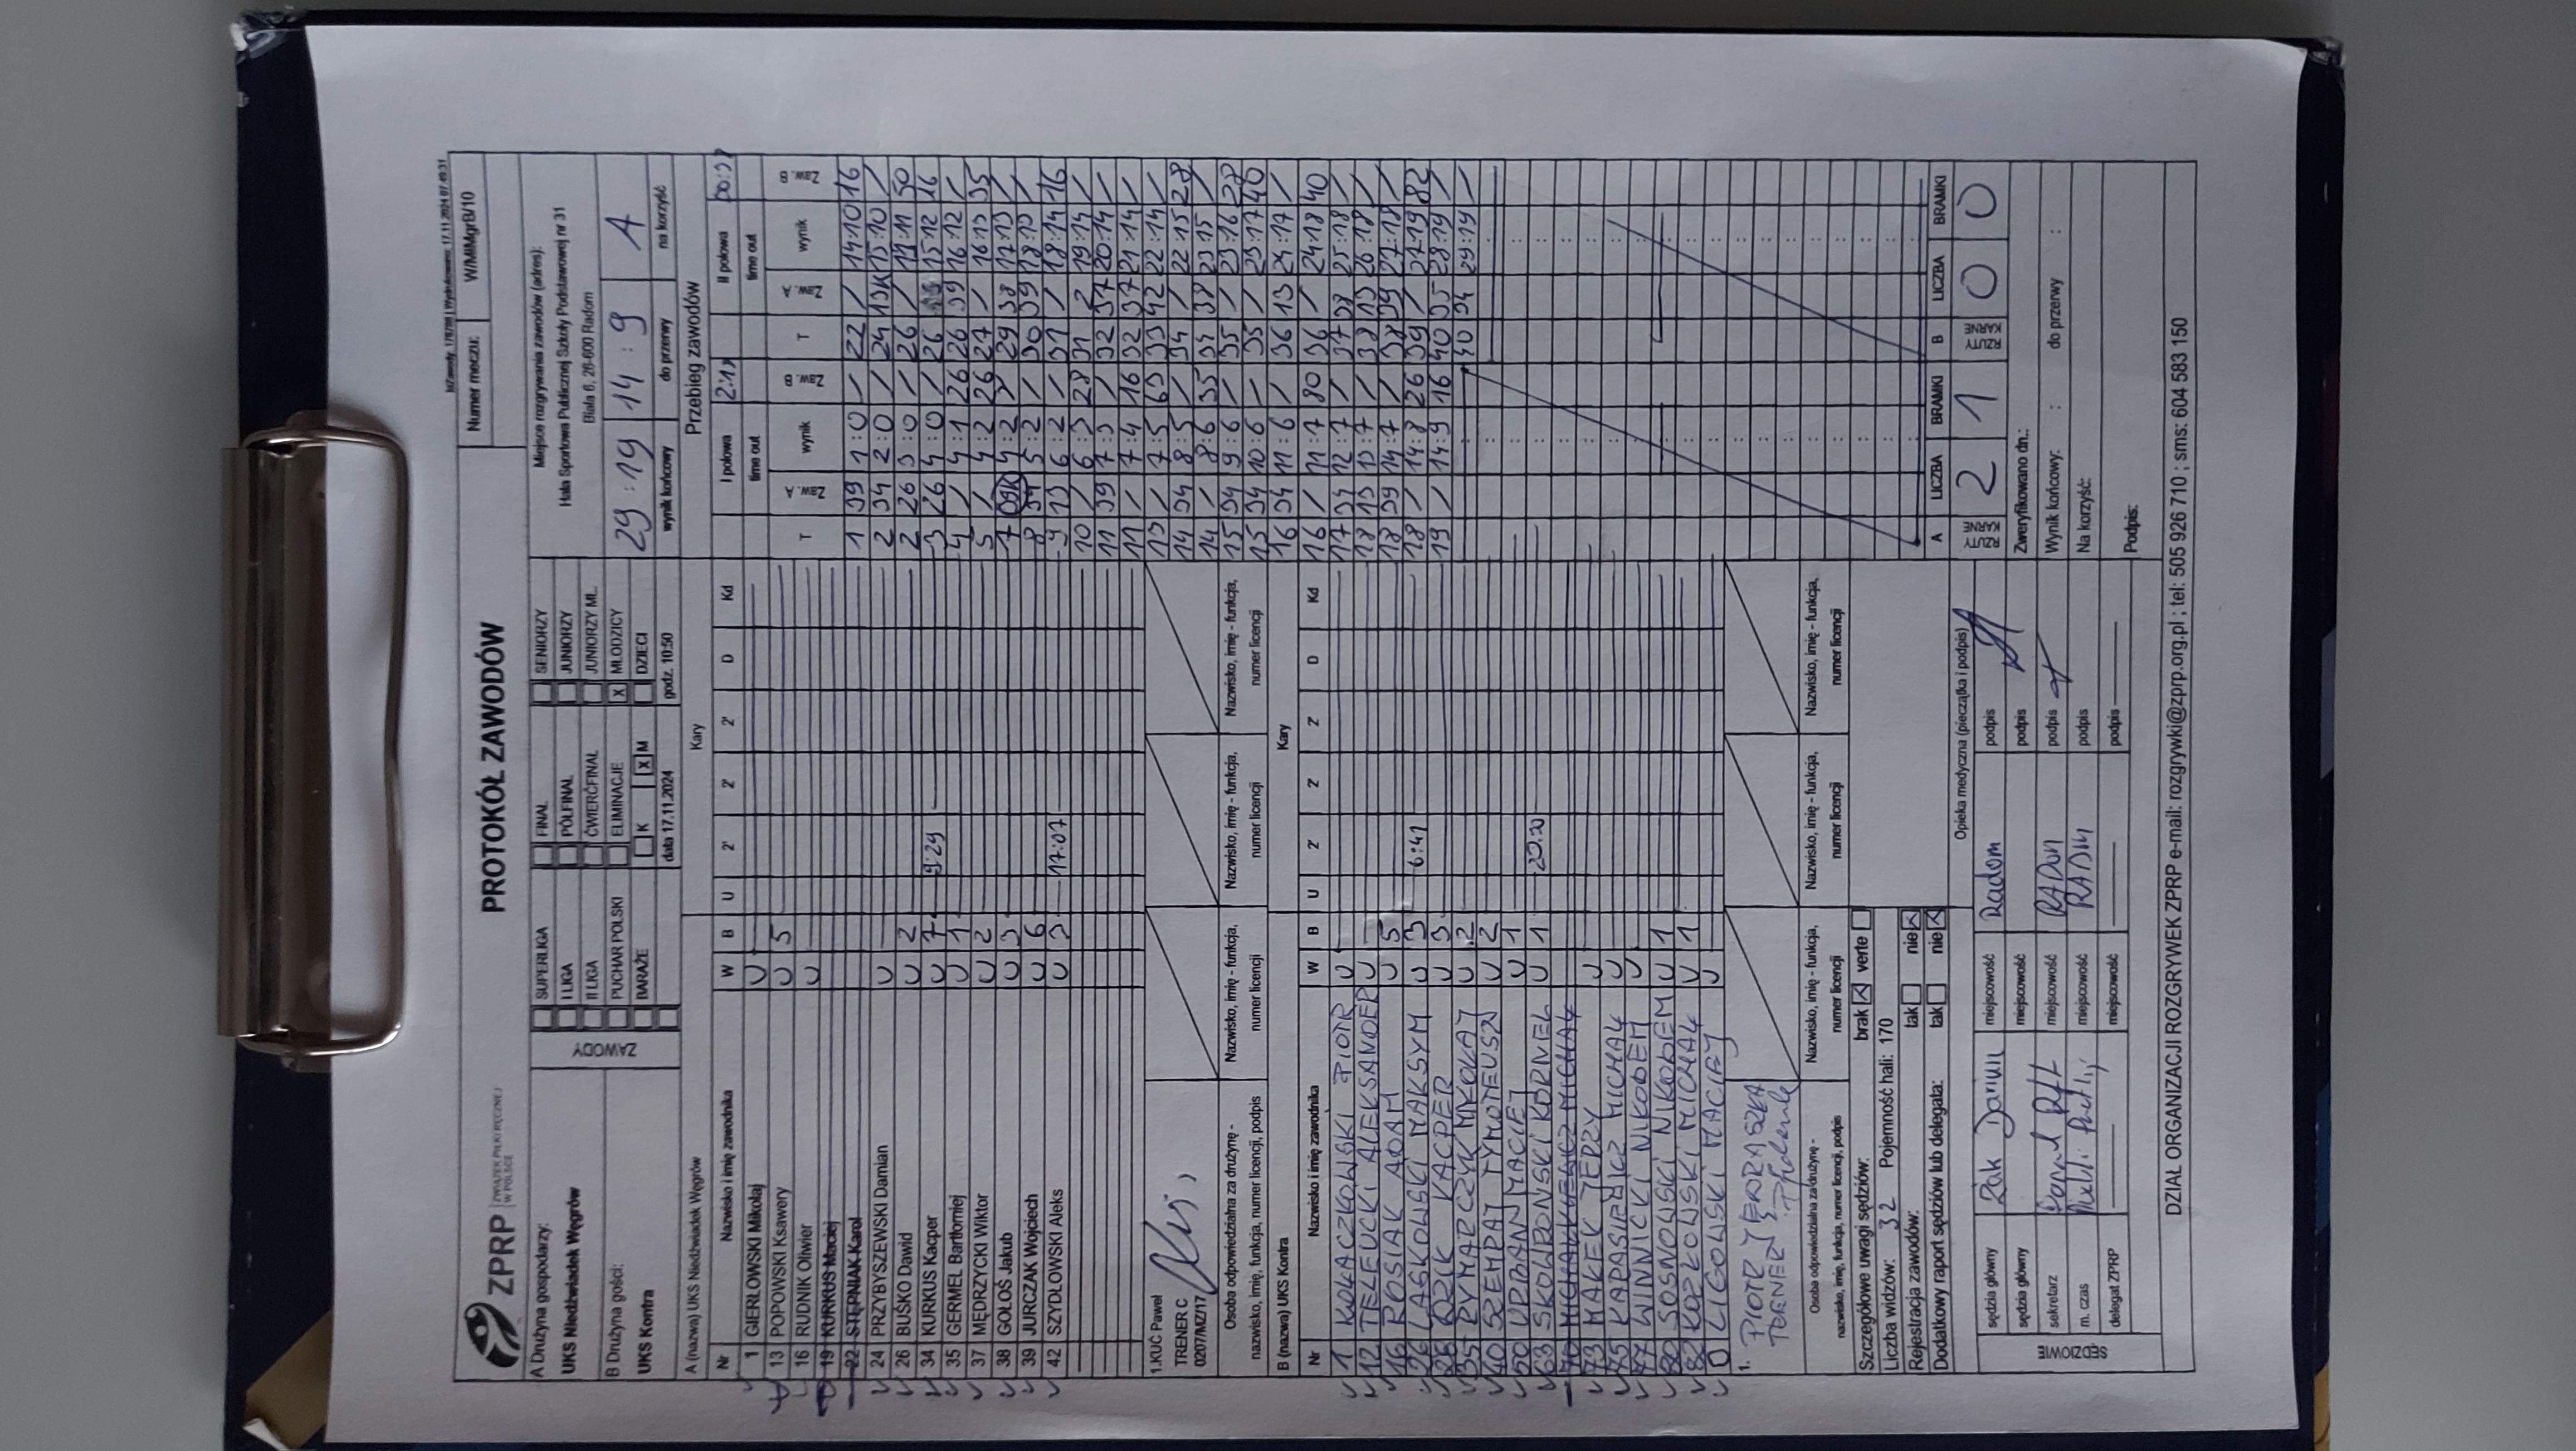 ZPRP ZWIĄZEK PIŁKI RĘCZNEJ W POLSCE
PROTOKÓŁ ZAWODÓW
Numer meczu: W/MłMgrB/10
A Drużyna gospodarzy:
UKS Niedźwiadek Węgrów
B Drużyna gości:
UKS Kontra
ZAWODY
SUPERLIGA
I LIGA
II LIGA
PUCHAR POLSKI
BARAŻE
FINAŁ
PÓŁFINAŁ
ĆWIERĆFINAŁ
ELIMINACJE
K X M
data 17.11.2024
SENIORZY
JUNIORZY
JUNIORZY MŁ.
X MŁODZICY
DZIECI
godz. 10:50
Miejsce rozgrywania zawodów (adres):
Hala Sportowa Publicznej Szkoły Podstawowej nr 31
Biała 6, 26-600 Radom
29:19 14:9 A
wynik końcowy do przerwy na korzyść
A (nazwa) UKS Niedźwiadek Węgrów
Kary
Nr Nazwisko i imię zawodnika W B U 2' 2' 2' D Kd
1 GIERŁOWSKI Mikołaj U
13 POPOWSKI Ksawery U 5
16 RUDNIK Oliwier U
19 KURKUS Maciej
22 STĘPNIAK Karol
24 PRZYBYSZEWSKI Damian U
26 BUŚKO Dawid U 2
34 KURKUS Kacper U 7 9:29
35 GERMEL Bartłomiej U 1
37 MĘDRZYCKI Wiktor U 2
38 GOŁOŚ Jakub U 3
39 JURCZAK Wojciech U 6
42 SZYDŁOWSKI Aleks U 3 17:07
1.KUĆ Paweł
TRENER C
0207/MZ/17
Osoba odpowiedzialna za drużynę -
nazwisko, imię, funkcja, numer licencji, podpis
Nazwisko, imię - funkcja,
numer licencji
Nazwisko, imię - funkcja,
numer licencji
Nazwisko, imię - funkcja,
numer licencji
B (nazwa) UKS Kontra
Kary
Nr Nazwisko i imię zawodnika W B U 2' 2' 2' D Kd
1 KOŁACZKOWSKI PIOTR U
12 TELEUCKI ALEKSANDER U
16 ROSIAK ADAM U 5
26 LASKOWSKI MAKSYM U 3 6:41
28 KACPER U 3
35 RYMARCZYK MIKOŁAJ U 2
40 SZEMPAJ TYMOTEUSZ U 2
50 URBAN MACIEJ U 1
63 SKOWROŃSKI KORNEL U 1 20:30
70
73 MAREK JERZY U
75 MICHAŁ U
77 WINNICKI NIKODEM U
80 SOSNOWSKI NIKODEM U 1
82 KOZŁOWSKI MICHAŁ U 1
0 LIGOWSKI MACIEJ U
1. PIOTR JĘDRASZKA
TRENER
Osoba odpowiedzialna za drużynę -
nazwisko, imię, funkcja, numer licencji, podpis
Nazwisko, imię - funkcja,
numer licencji
Nazwisko, imię - funkcja,
numer licencji
Nazwisko, imię - funkcja,
numer licencji
Szczegółowe uwagi sędziów: brak X verte
Liczba widzów: 32 Pojemność hali: 170
Rejestracja zawodów: tak nie X
Dodatkowy raport sędziów lub delegata: tak nie X
Opieka medyczna (pieczątka i podpis)
SĘDZIOWIE
sędzia główny Żak Dariusz miejscowość Radom podpis
sędzia główny miejscowość podpis
sekretarz miejscowość RADOM podpis
m. czas miejscowość RADOM podpis
delegat ZPRP miejscowość podpis
Przebieg zawodów
I połowa II połowa
time out time out
T Zaw. A wynik Zaw. B T Zaw. A wynik Zaw. B
1 39 1:0 / 22 / 14:10 16
2 34 2:0 / 24 13K 15:10 /
2 26 3:0 / 26 / 15:11 50
3 26 4:0 / 26 15:12 26
4 / 4:1 26 26 39 16:12 /
5 / 4:2 26 27 / 16:13 35
7 39K 4:2 / 29 38 17:13 /
8 34 5:2 / 30 39 18:13 /
9 13 6:2 / 31 / 18:14 16
10 / 6:3 28 31 2 19:14 /
11 39 7:3 / 32 37 20:14 /
11 / 7:4 16 32 37 21:14 /
13 / 7:5 63 33 42 22:14 /
14 34 8:5 / 34 / 22:15 28
14 / 8:6 35 34 38 23:15 /
15 34 9:6 / 35 / 23:16 28
15 34 10:6 / 35 / 23:17 40
16 34 11:6 / 36 13 24:17 /
16 / 11:7 80 36 / 24:18 40
17 34 12:7 / 37 38 25:18 /
18 13 13:7 / 38 13 26:18 /
18 39 14:7 / 38 39 27:18 /
18 / 14:8 26 39 / 27:19 82
19 / 14:9 16 40 35 28:19 /
40 34 29:19 /
A LICZBA BRAMKI B LICZBA BRAMKI
RZUTY KARNE 2 1 RZUTY KARNE 0 0
Zweryfikowano dn.:
Wynik końcowy: : do przerwy :
Na korzyść:
Podpis:
DZIAŁ ORGANIZACJI ROZGRYWEK ZPRP e-mail: rozgrywki@zprp.org.pl ; tel: 505 926 710 ; sms: 604 583 150